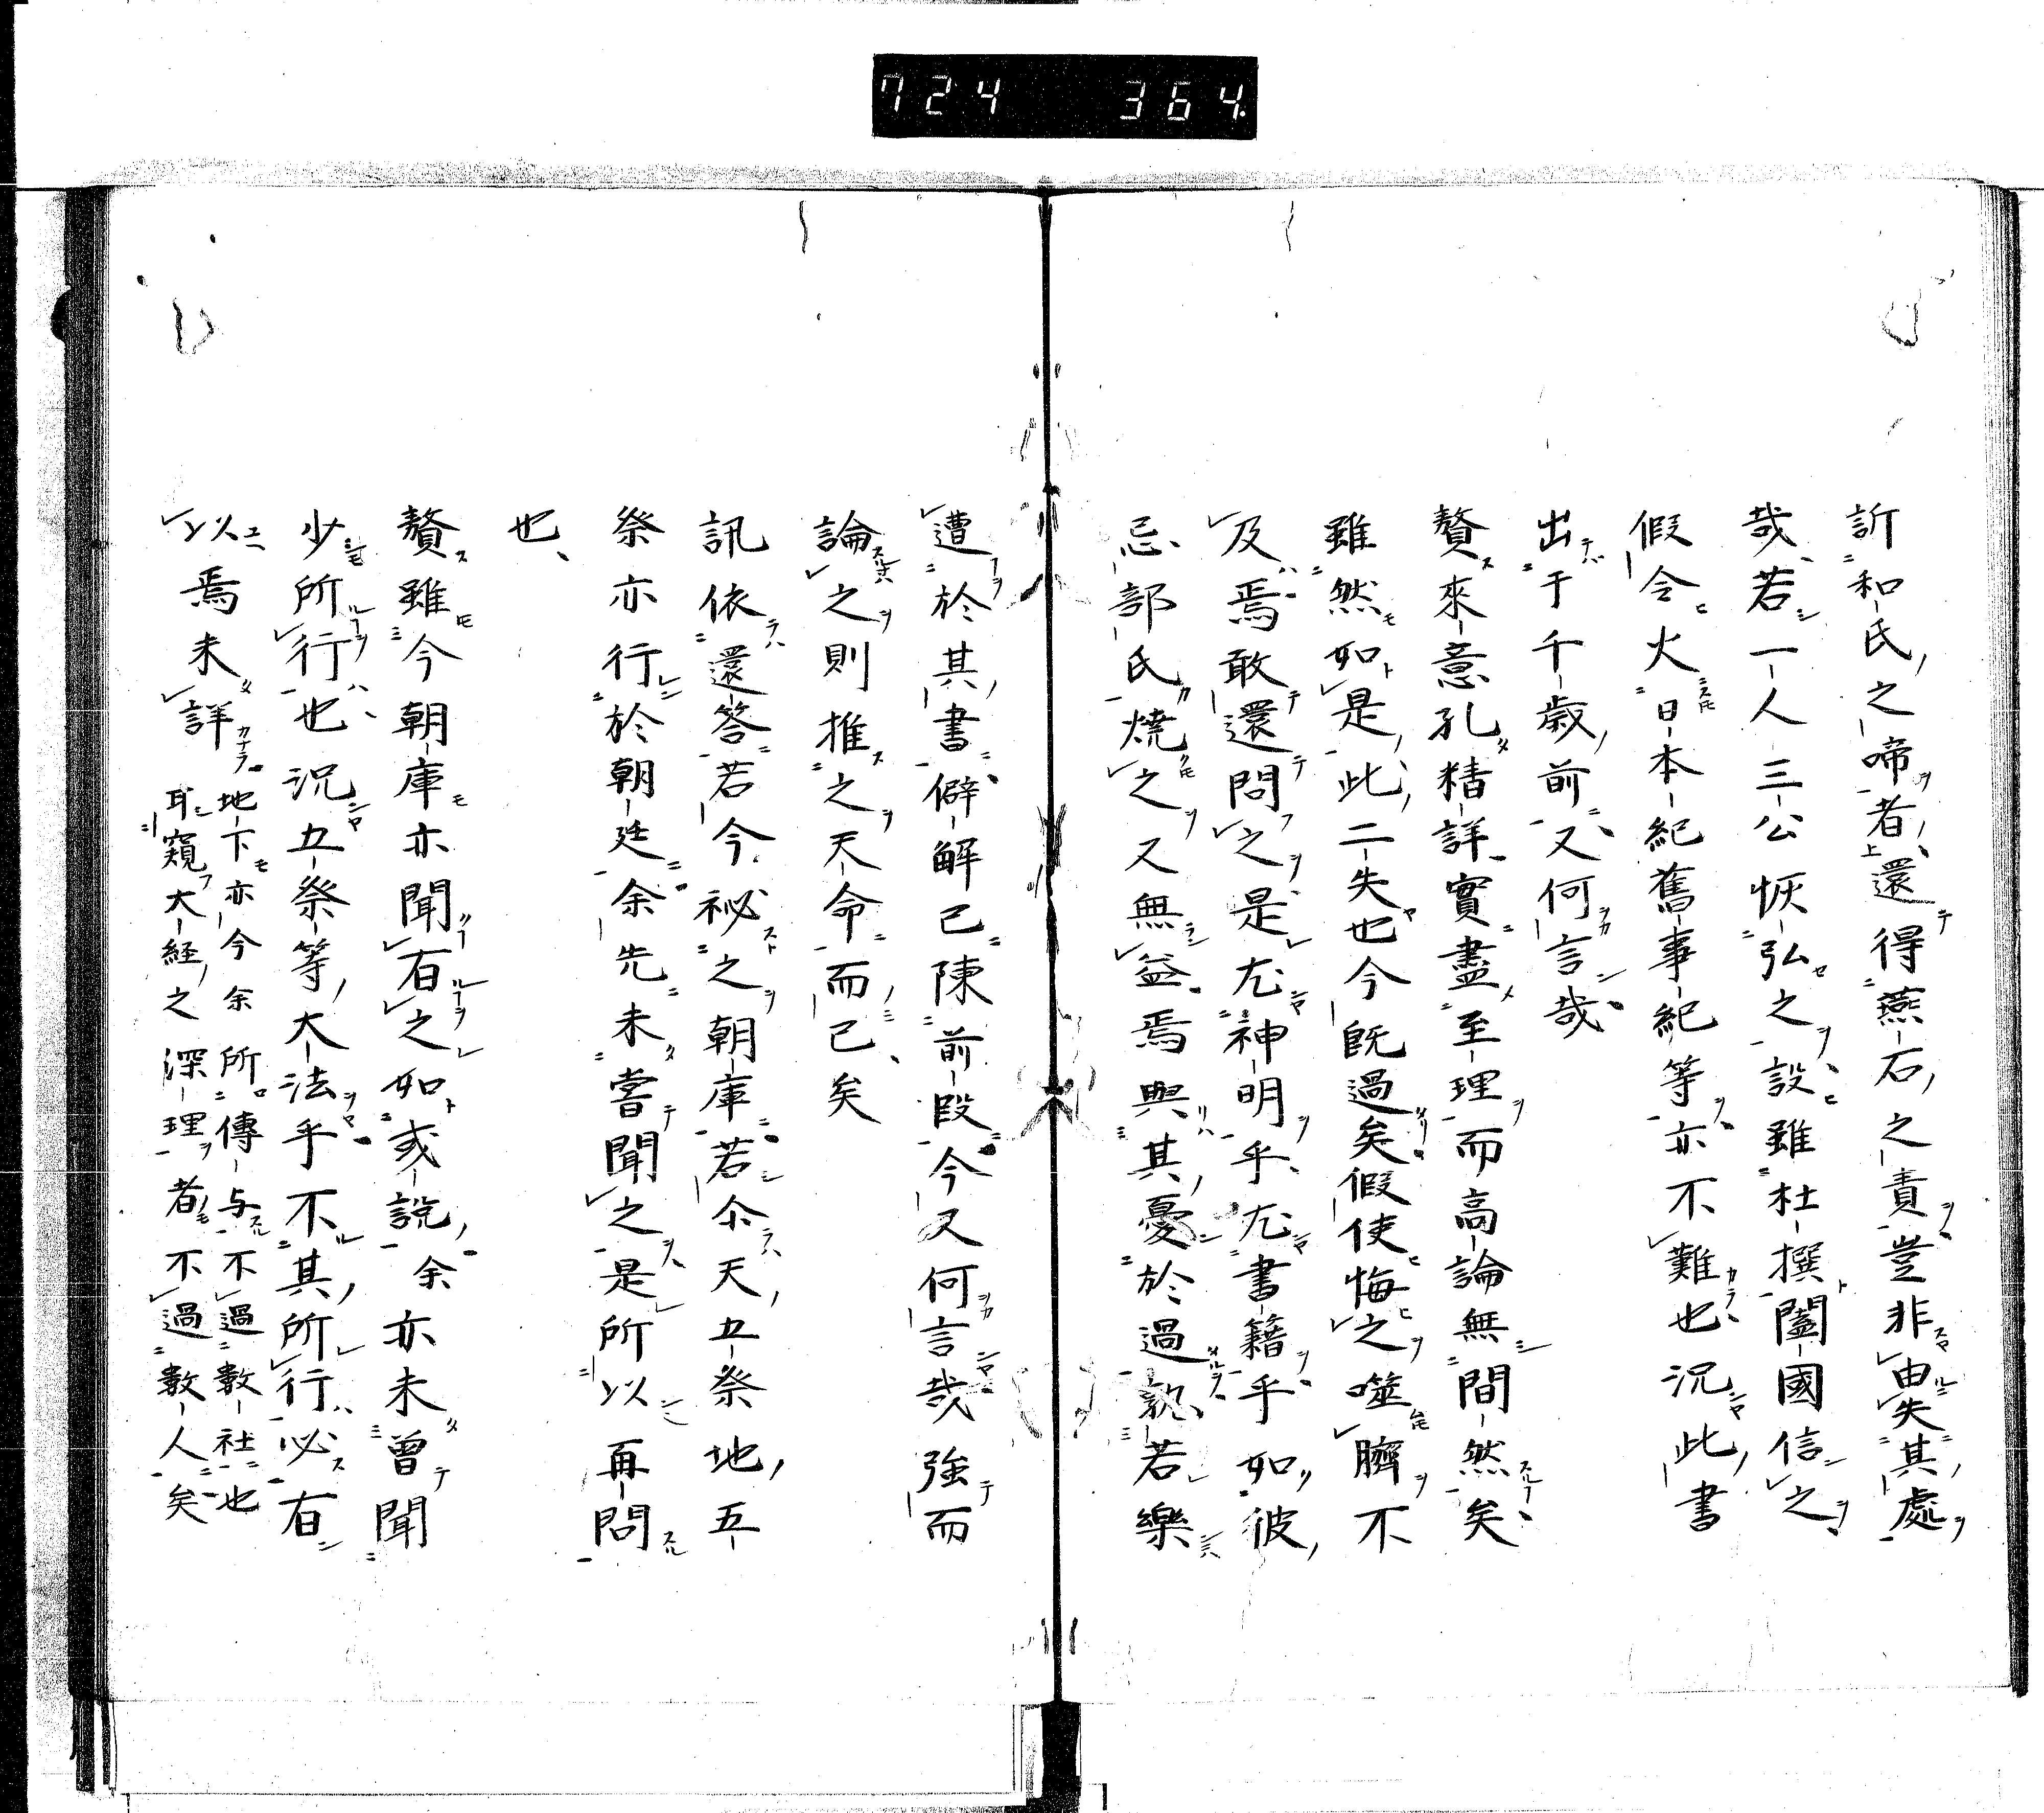 724 364
訢和氏之啼者還得燕石之責豈非由失其處
哉若一人三公恢弘之設雖杜撰闔國信之
假令火日本紀舊事紀等亦不難也況此書
出于千歳前又何言哉
贅來意孔精詳實盡至理而高論無間然矣
雖然如是此二失也今既過矣假使悔之噬臍不
及焉敢還問之是尤神明乎尤書籍乎如彼
忌部氏燒之又無益焉與其憂於過孰若樂
遭於其書僻解已陳前段今又何言哉強而
論之則推之天命而已矣
訊依還答若今祕之朝庫若尒天五祭地五
祭亦行於朝廷余先未嘗聞之是所以再問
也
贅雖今朝庫亦聞有之如或説余亦未曾聞
少所行也況五祭等大法乎不其所行必有
以焉未詳
地下亦今余所傳与不過數社也
耳窺大経之深理者不過數人矣